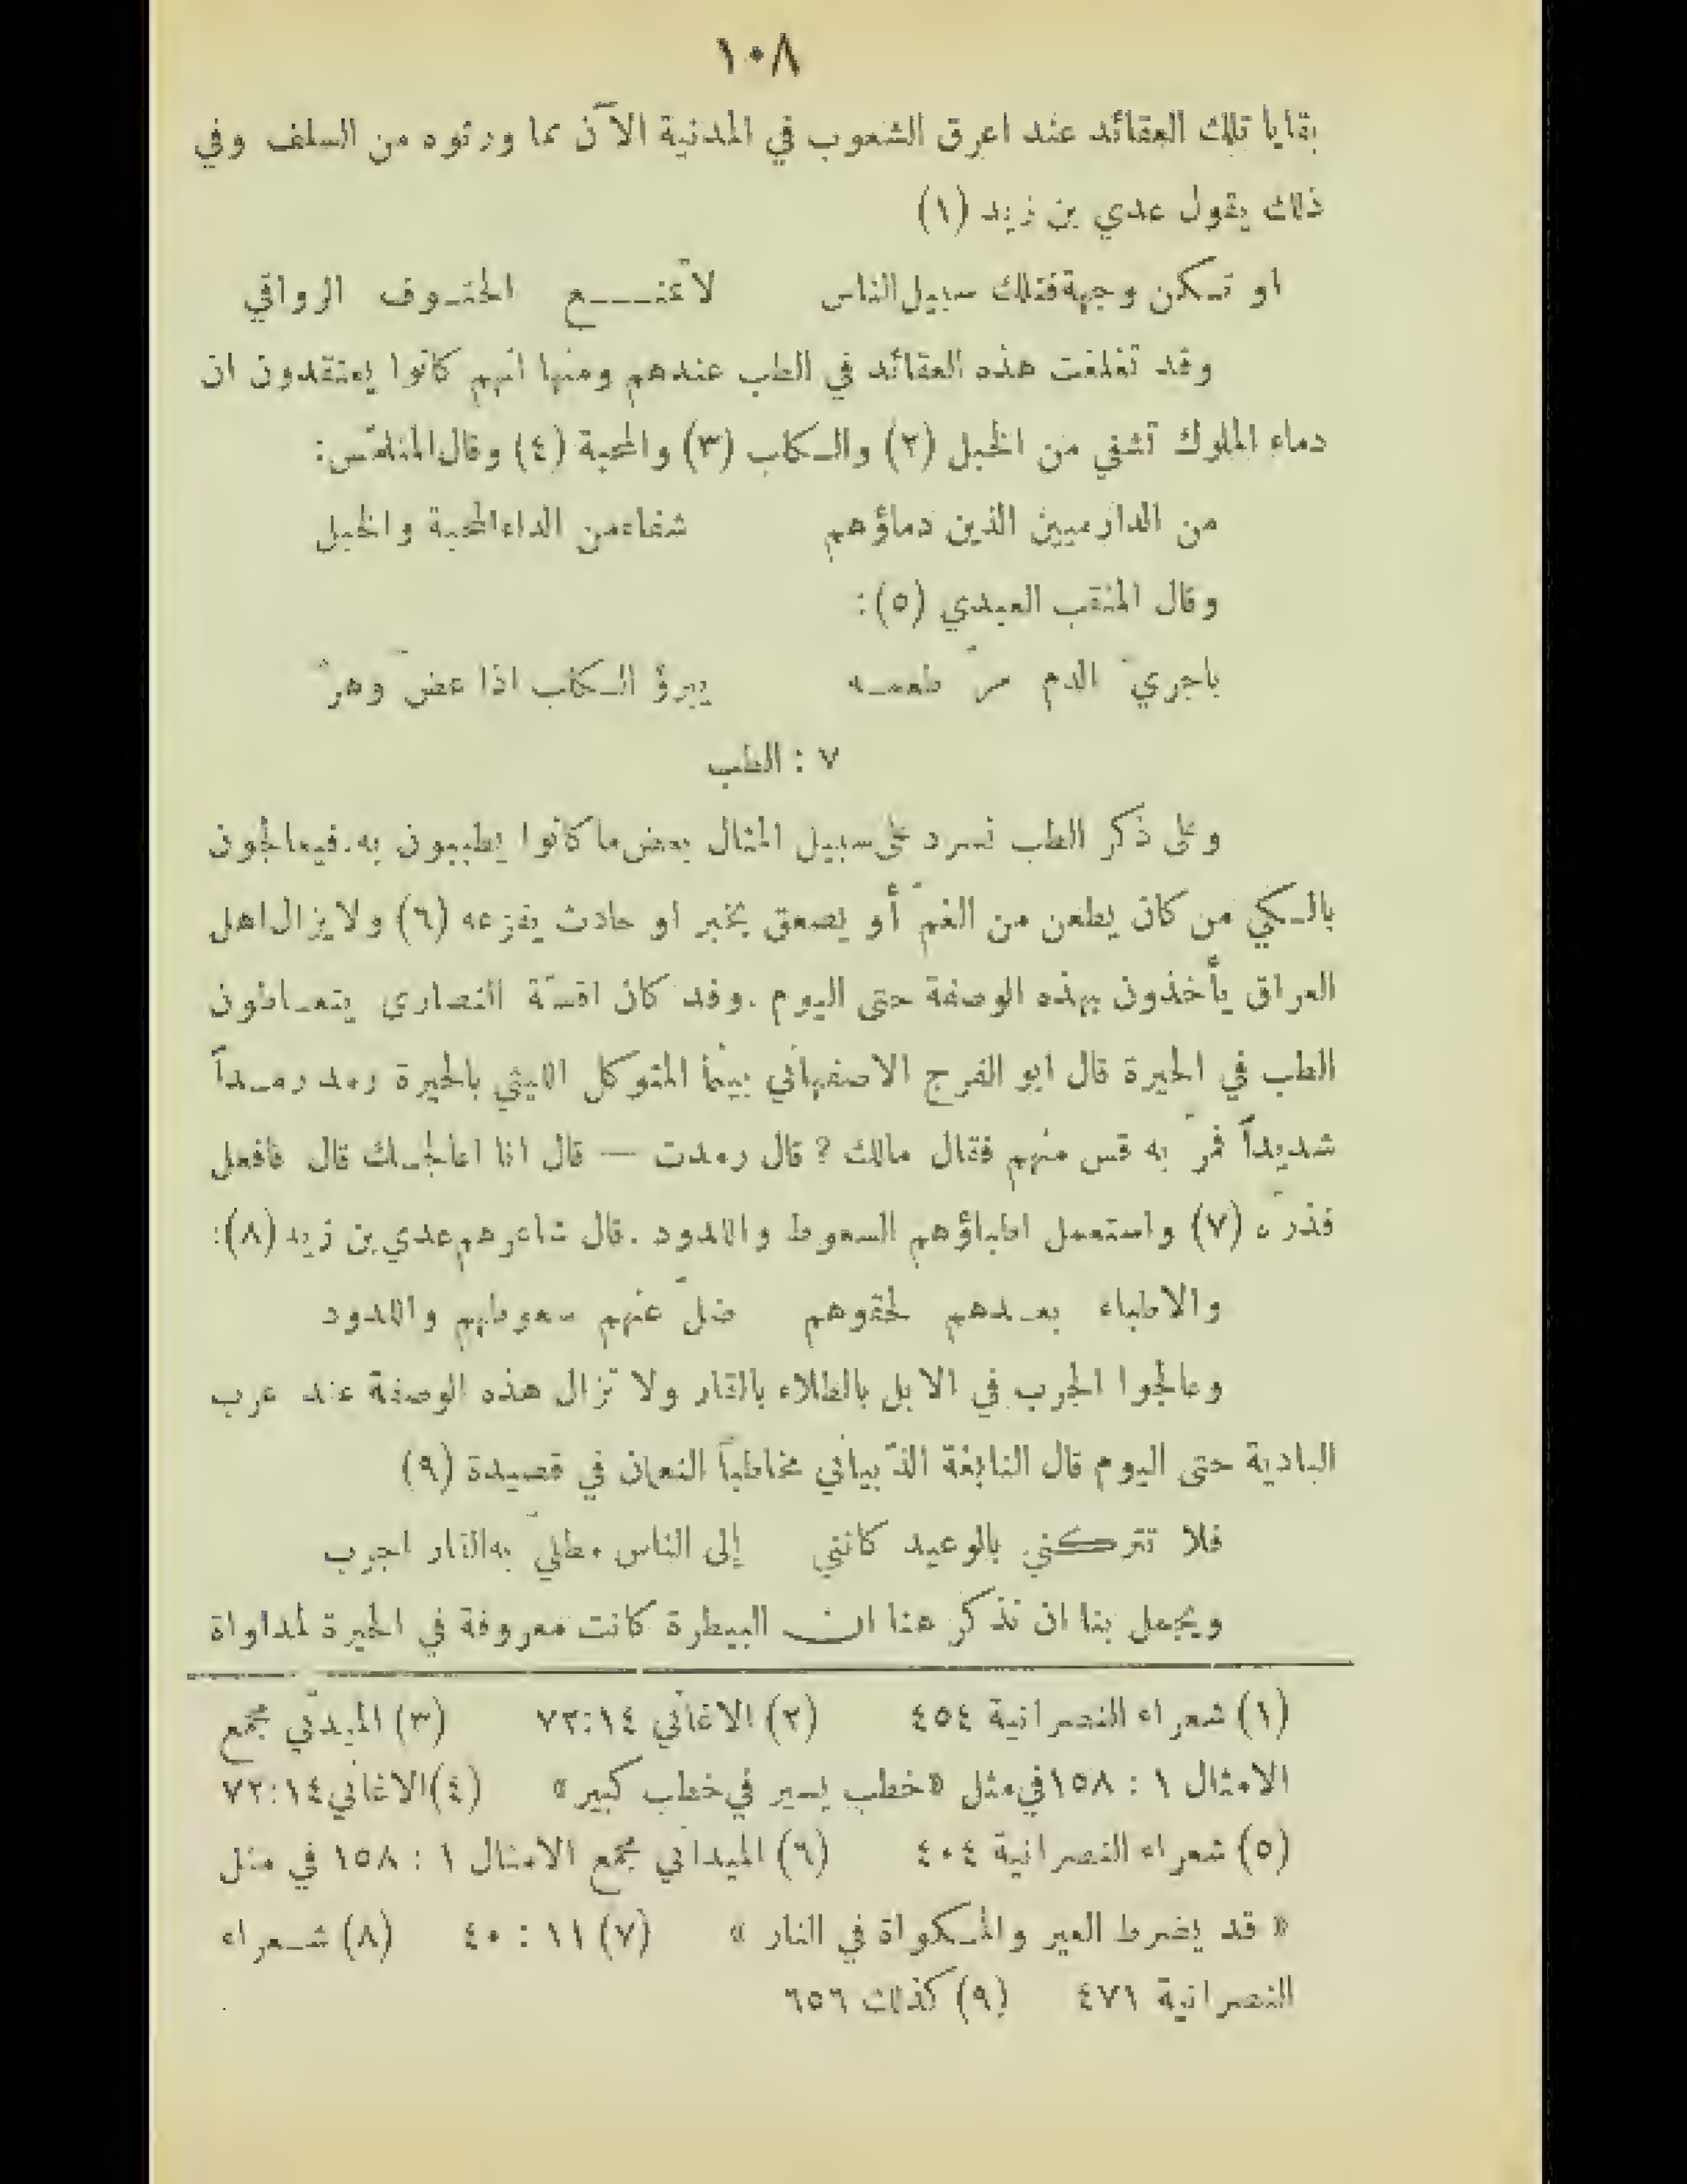 ١٠٨
بقايا تلك العقائد عند اعرق الشعوب في المدنية الآن مما ورثوه من السلف وفي
ذلك يقول عدي بن زيد (١)
او تكن وجهة فتلك سبيل الناس لا تمنع الحتوف الرواقي
وقد تغلغلت هذه العقائد في الطب عندهم ومنها انهم كانوا يعتقدون ان
دماء الملوك تشفي من الخبل (٢) والكلب (٣) والمجنة (٤) وقال المتلمّس:
من الدارميين الذين دماؤهم شفاء من الداء المجنة والخبل
وقال المثقب العبدي (٥):
باجريّ الدم مرّ طعمه يبرؤ الكلب اذا عضّ وهرّ
٧ : الطب
وعلى ذكر الطب نسرد على سبيل المثال بعض ما كانوا يطببون به. فيعالجون
بالكي من كان يطعن من الغمّ أو يصعق بخبر او حادث يفزعه (٦) ولا يزال اهل
العراق يأخذون بهذه الوصفة حتى اليوم. وقد كان اقسّة النصارى يتعاطون
الطب في الحيرة قال ابو الفرج الاصفهاني بينما المتوكل الليثي بالحيرة رمد رمداً
شديداً فمرّ به قس منهم فقال مالك ? قال رمدت — قال انا اعالجك قال فافعل
فذرّه (٧) واستعمل اطباؤهم السعوط واللدود . قال شاعرهم عدي بن زيد (٨):
والاطباء بعدهم لحقوهم ضلّ عنهم سعوطهم واللدود
وعالجوا الجرب في الابل بالطلاء بالقار ولا تزال هذه الوصفة عند عرب
البادية حتى اليوم قال النابغة الذّبياني مخاطباً النعمان في قصيدة (٩)
فلا تتركني بالوعيد كانني إلى الناس مطليّ به القار اجرب
ويجمل بنا ان نذكر هنا ان البيطرة كانت معروفة في الحيرة لمداواة
(١) شعراء النصرانية ٤٥٤ (٢) الاغاني ١٤:٧٢ (٣) الميدني مجمع
الامثال ١ : ١٥٨ في مثل «خطب يسير في خطب كبير» (٤) الاغاني ١٤:٧٢
(٥) شعراء النصرانية ٤٠٤ (٦) الميداني مجمع الامثال ١ : ١٥٨ في مثل
« قد يضرط العير والمكواة في النار » (٧) ١١ : ٤٠ (٨) شعراء
النصرانية ٤٧١ (٩) كذلك ٦٥٦